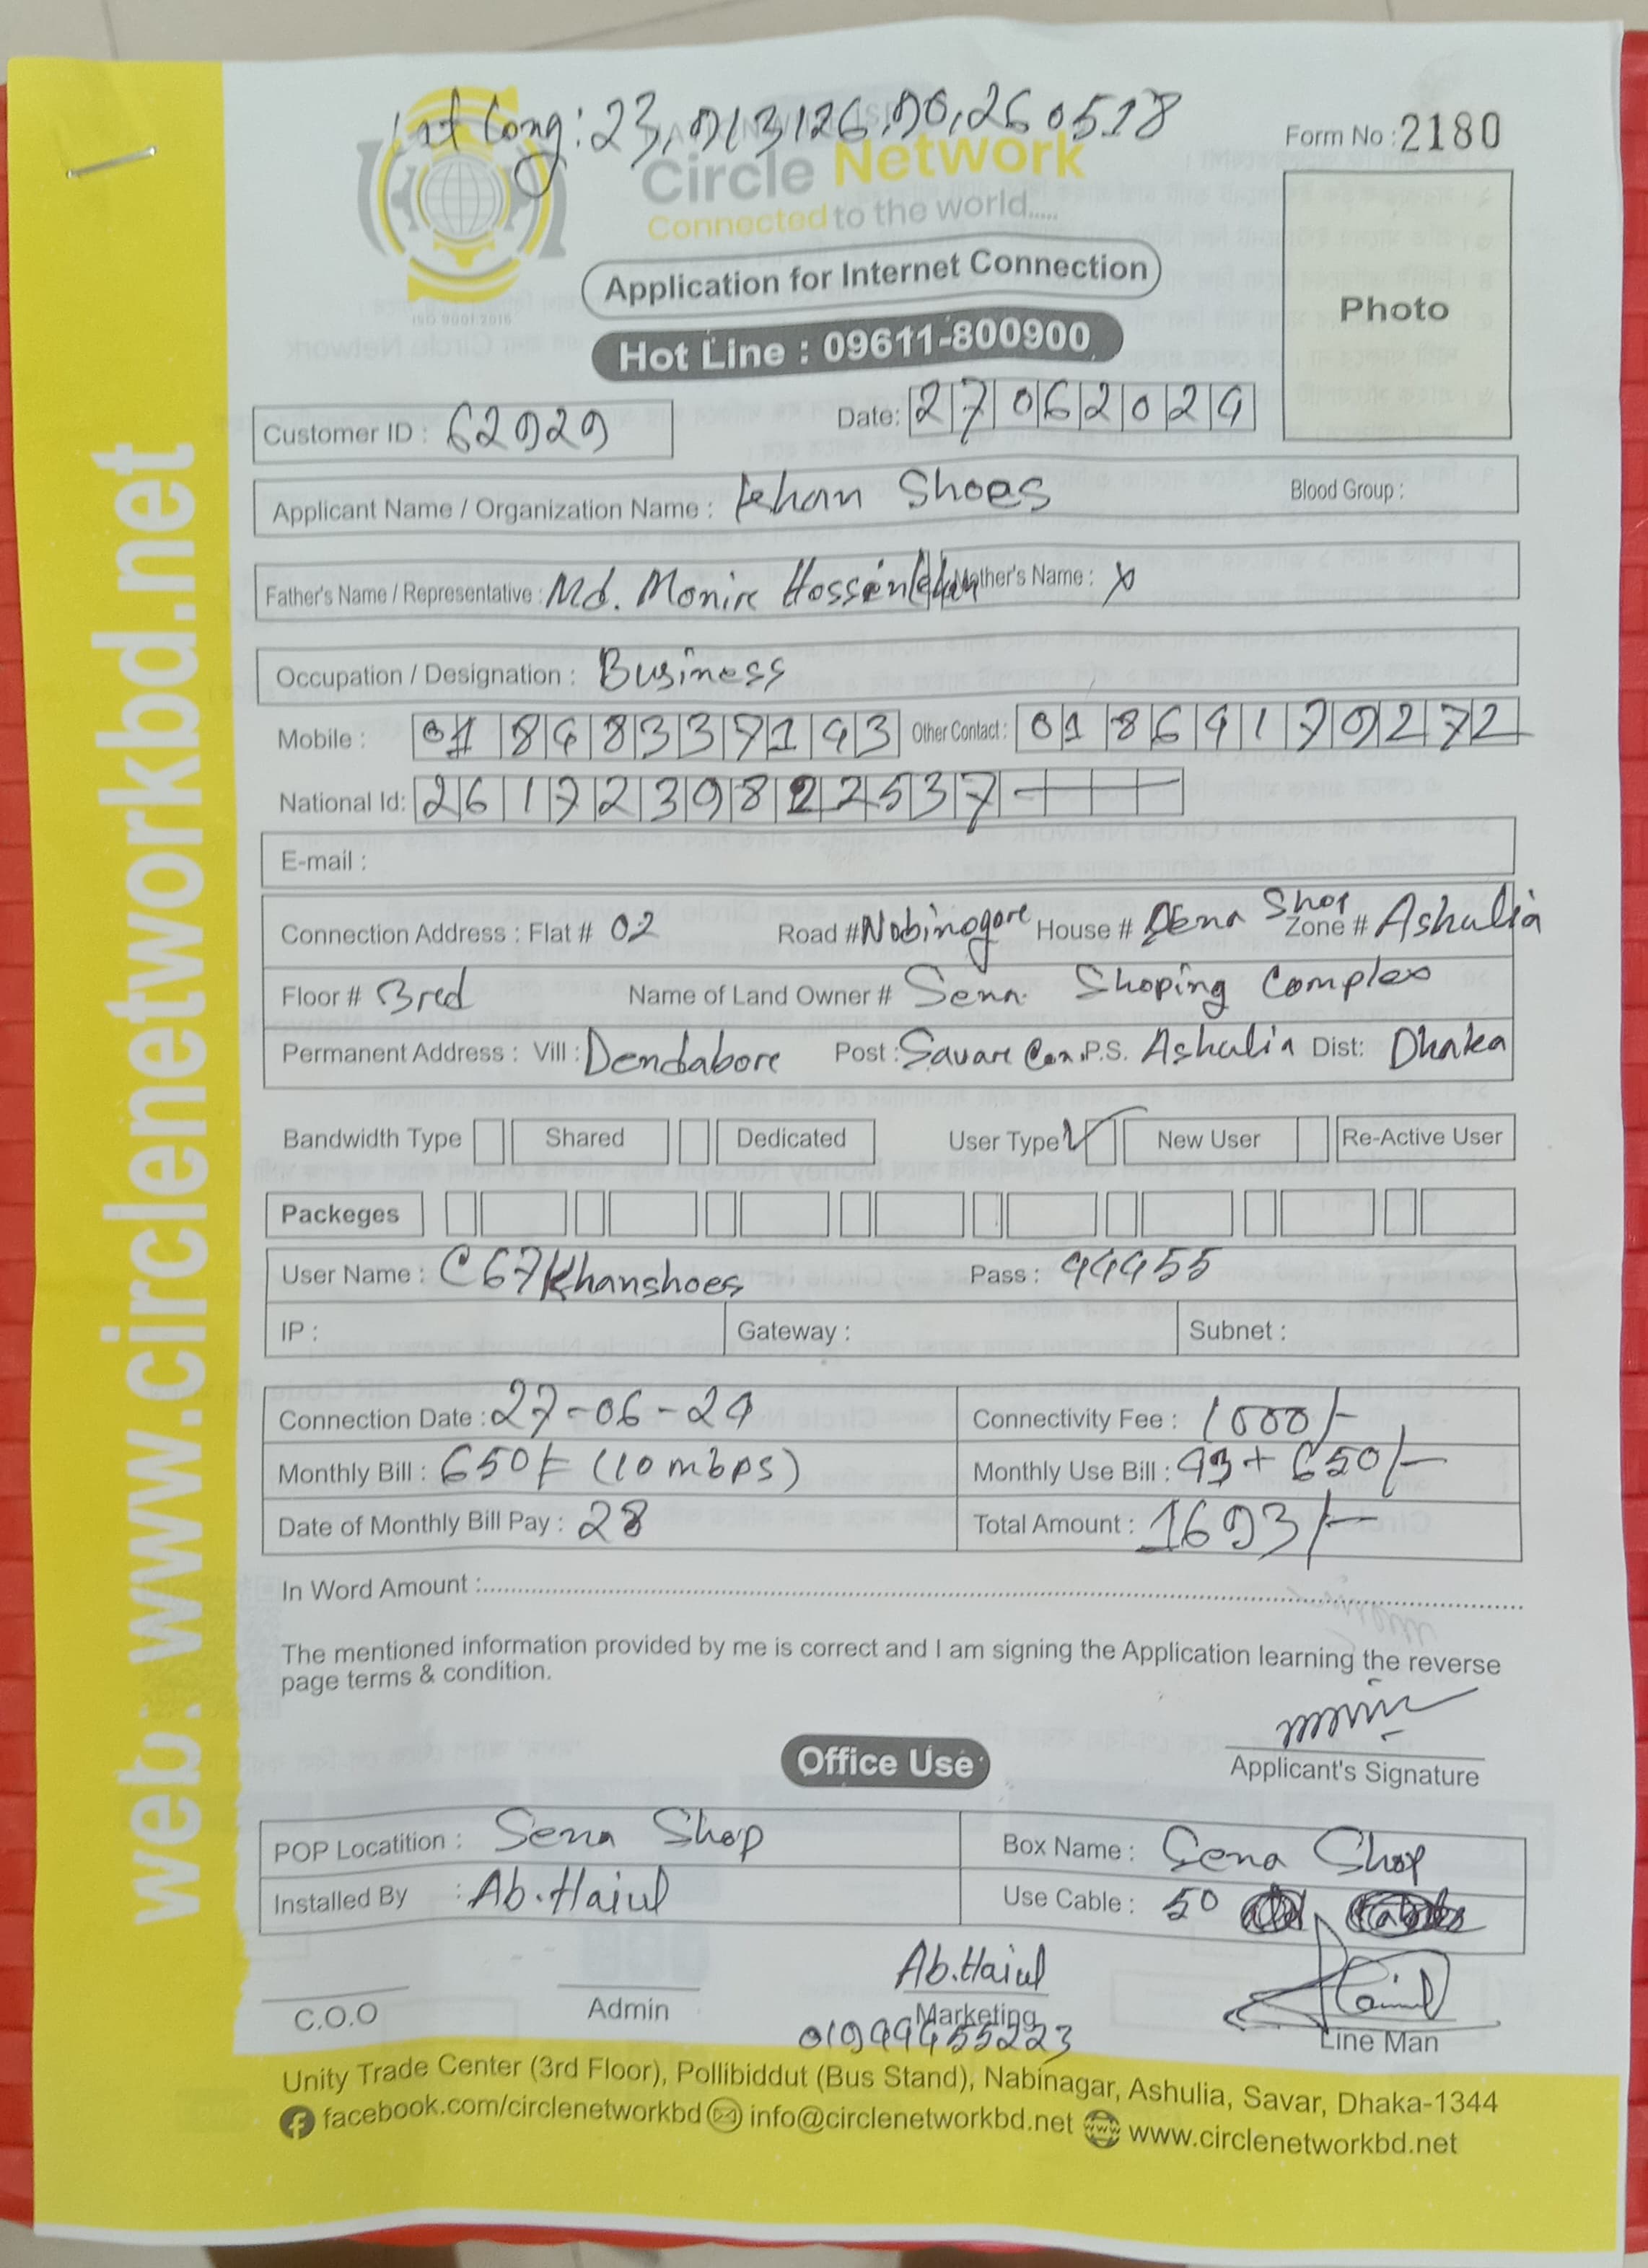 Lat Long: 23,913126,90,260518
Form No : 2180
Circle Network
Connected to the world.....
ISO 9001:2015
Application for Internet Connection
Photo
Hot Line : 09611-800900
Customer ID : 62929
Date: 27062024
Applicant Name / Organization Name : Khan Shoes Blood Group :
Father's Name / Representative : Md. Monir Hossen Khan Mother's Name : x
Occupation / Designation : Business
Mobile : 01848337143 Other Contact : 01864179272
National Id: 2617239822537
E-mail :
Connection Address : Flat # 02 Road # Nobinogore House # Sena Shop Zone # Ashulia
Floor # 3red Name of Land Owner # Sena Shoping Complex
Permanent Address : Vill : Dendabore Post : Savar Can. P.S. Ashulia Dist: Dhaka
Bandwidth Type Shared Dedicated User Type New User Re-Active User
Packeges
User Name : C67Khanshoes Pass : 44455
IP : Gateway : Subnet :
Connection Date : 27-06-24 Connectivity Fee : 1000/-
Monthly Bill : 650/= (10 mbps) Monthly Use Bill : 43+650/-
Date of Monthly Bill Pay : 28 Total Amount : 1693/-
In Word Amount :
The mentioned information provided by me is correct and I am signing the Application learning the reverse
page terms & condition.
Applicant's Signature
Office Use
POP Locatition : Sena Shop Box Name : Sena Shop
Installed By : Ab.Haiul Use Cable : 50
Ab.Haiul
C.O.O Admin Marketing Line Man
01944455223
Unity Trade Center (3rd Floor), Pollibiddut (Bus Stand), Nabinagar, Ashulia, Savar, Dhaka-1344
facebook.com/circlenetworkbd info@circlenetworkbd.net www.circlenetworkbd.net
web: www.circlenetworkbd.net